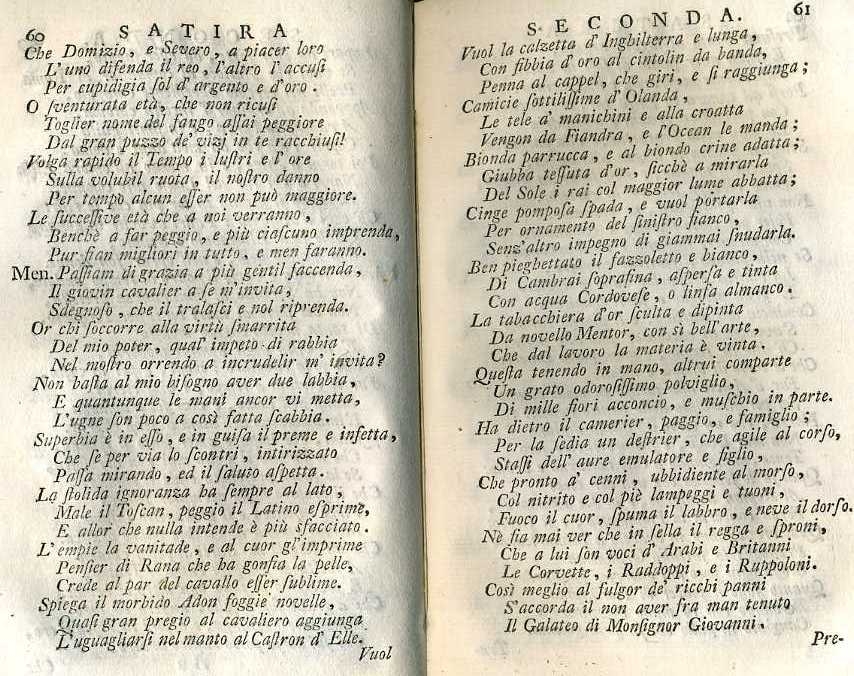 60 SATIRA
Che Domizio, e Severo, a piacer loro
L'uno difenda il reo, l'altro l'accuſi
Per cupidigia ſol d'argento e d'oro.
O ſventurata età, che non ricuſi
Toglier nome del fango aſſai peggiore
Dal gran puzzo de' vizj in te racchiuſi!
Volga rapido il Tempo i luſtri e l'ore
Sulla volubil ruota, il noſtro danno
Per tempo alcun eſſer non può maggiore.
Le ſucceſſive età che a noi verranno,
Benchè a far peggio, e più ciaſcuno imprenda,
Pur ſian migliori in tutto, e men faranno.
Men. Paſſiam di grazia a più gentil faccenda,
Il giovin cavalier a ſe m'invita,
Sdegnoſo, che il tralaſci e nol riprenda.
Or chi ſoccorre alla virtù ſmarrita
Del mio poter, qual' impeto di rabbia
Nel moſtro orrendo a incrudelir m' invita?
Non baſta al mio biſogno aver due labbia,
E quantunque le mani ancor vi metta,
L'ugne ſon poco a così fatta ſcabbia.
Superbia è in eſſo, e in guiſa il preme e infetta,
Che ſe per via lo ſcontri, intirizzato
Paſſa mirando, ed il ſaluto aſpetta.
La ſtolida ignoranza ha ſempre al lato,
Male il Toſcan, peggio il Latino eſprime,
E allor che nulla intende è più sfacciato.
L'empie la vanitade, e al cuor gl'imprime
Penſier di Rana che ha gonfia la pelle,
Crede al par del cavallo eſſer ſublime.
Spiega il morbido Adon foggie novelle,
Quaſi gran pregio al cavaliero aggiunga
L'uguagliarſi nel manto al Caſtron d' Elle.
Vuol
SECONDA. 61
Vuol la calzetta d' Inghilterra e lunga,
Con fibbia d' oro al cintolin da banda,
Penna al cappel, che giri, e ſi raggiunga;
Camicie ſottiliſſime d' Olanda,
Le tele a' manichini e alla croatta
Vengon da Fiandra, e l'Ocean le manda;
Bionda parrucca, e al biondo crine adatta;
Giubba teſſuta d'or, ſicchè a mirarla
Del Sole i rai col maggior lume abbatta;
Cinge pompoſa ſpada, e vuol portarla
Per ornamento del ſiniſtro fianco,
Senz'altro impegno di giammai ſnudarla.
Ben pieghettato il fazzoletto e bianco,
Di Cambrai ſoprafina, aſperſa e tinta
Con acqua Cordoveſe, o linfa almanco.
La tabacchiera d'or ſculta e dipinta
Da novello Mentor, con sì bell'arte,
Che dal lavoro la materia è vinta.
Queſta tenendo in mano, altrui comparte
Un grato odoroſiſſimo polviglio,
Di mille fiori acconcio, e muſchio in parte.
Ha dietro il camerier, paggio, e famiglio;
Per la ſedia un deſtrier, che agile al corſo,
Staſſi dell' aure emulatore e figlio,
Che pronto a' cenni, ubbidiente al morſo,
Col nitrito e col piè lampeggi e tuoni,
Fuoco il cuor, ſpuma il labbro, e neve il dorſo.
Nè ſia mai ver che in ſella il regga e ſproni,
Che a lui ſon voci d' Arabi e Britanni
Le Corvette, i Raddoppi, e i Rappoloni.
Così meglio al fulgor de' ricchi panni
S'accorda il non aver fra man tenuto
Il Galateo di Monſignor Giovanni.
Pre-